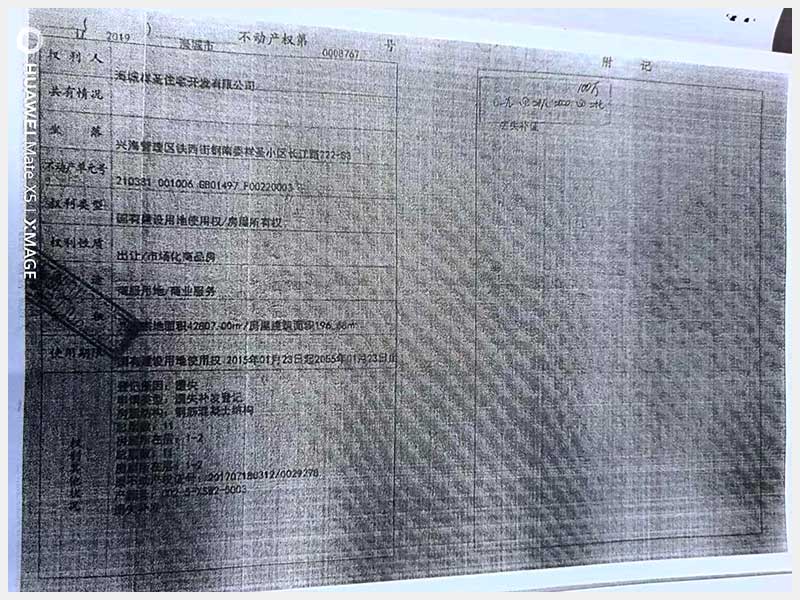 辽 2019 海城市 不动产权第 0008767 号
权利人 海城祥圣住宅开发有限公司
共有情况
坐落 兴海管理区铁西街钢南委祥圣小区长江路222-S3
不动产单元号 210381 001006 GB01497 F00220003
权利类型 国有建设用地使用权/房屋所有权
权利性质 出让/市场化商品房
途 商服用地/商业服务
地面积42807.00㎡/房屋建筑面积196.
使用期限 国有建设用地使用权 2015年01月23日起2055年01月23日止
权利其他状况
登记原因：遗失
申请类型：遗失补发登记
房屋结构：钢筋混凝土结构
总层数：11
房屋所在层：1-2
总层数：11
房屋所在层：1-2
原不动产权证号：201707180312/0029278
遗失补发
附记
100万
遗失补证
HUAWEI Mate XS | XMAGE